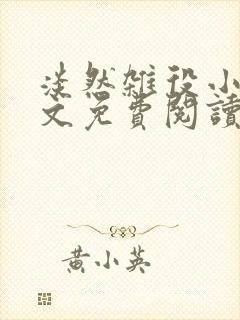 淡然雜役小
文免費閱讀
黃小英